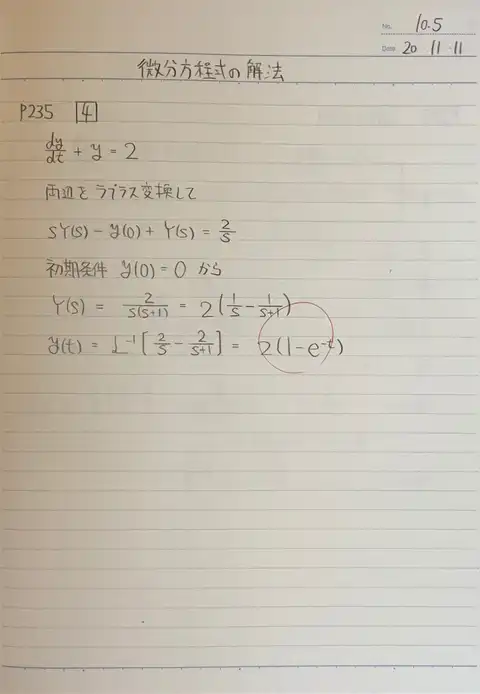 No. 10.5
Date 20 11 11
微分方程式の解法
P235 4
dy/dt + y = 2
両辺をラプラス変換して
sY(s) - y(0) + Y(s) = 2/s
初期条件 y(0) = 0 から
Y(s) = 2/s(s+1) = 2(1/s - 1/s+1)
y(t) = L⁻¹[2/s - 2/s+1] = 2(1-e⁻ᵗ)